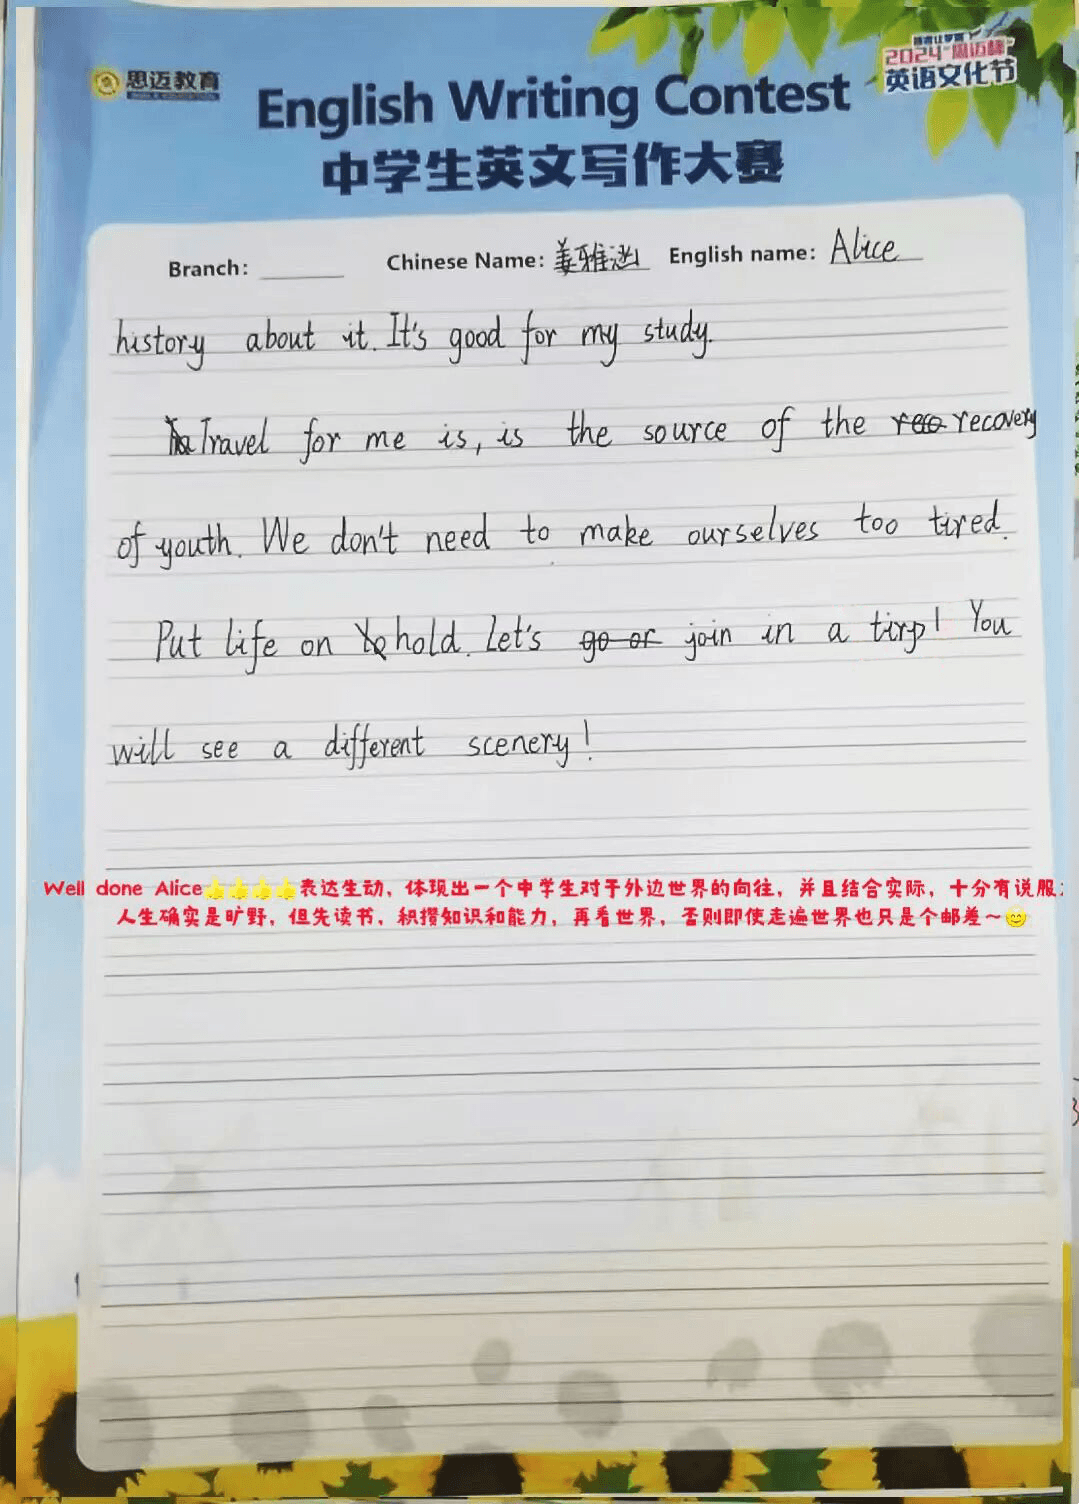 思迈教育
2024"思迈峰"
英语文化节
English Writing Contest
中学生英文写作大赛
Branch: Chinese Name: 姜雅 English name: Alice
history about it. It's good for my study.
Travel for me is, is the source of the reco recovery
of youth. We don't need to make ourselves too tired.
Put life on hold. Let's go or join in a tirp! You
will see a different scenery!
Well done Alice👍👍👍👍表达生动，体现出一个中学生对于外边世界的向往，并且结合实际，十分有说服
人生确实是旷野，但先读书，积攒知识和能力，再看世界，否则即使走遍世界也只是个邮差~😊